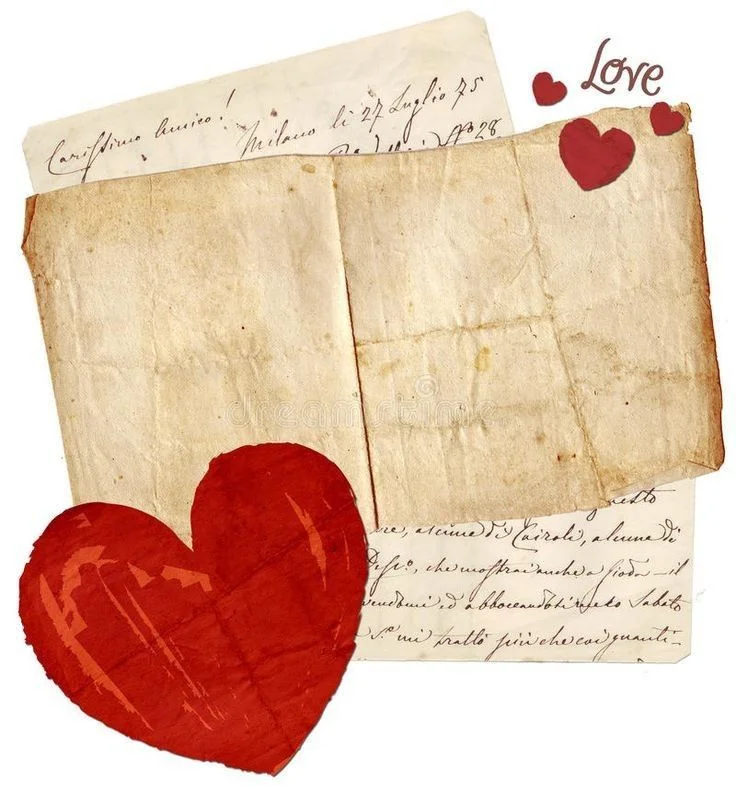 Love
Carissimo Amico!
Milano li 27 Luglio 75
28
questo
alcune di Cairoli, alcuna di
che mostrai anche a Gioda — il
ed abboccandoti meco Sabato
mi trattò più che coi guanti-
dreamstime